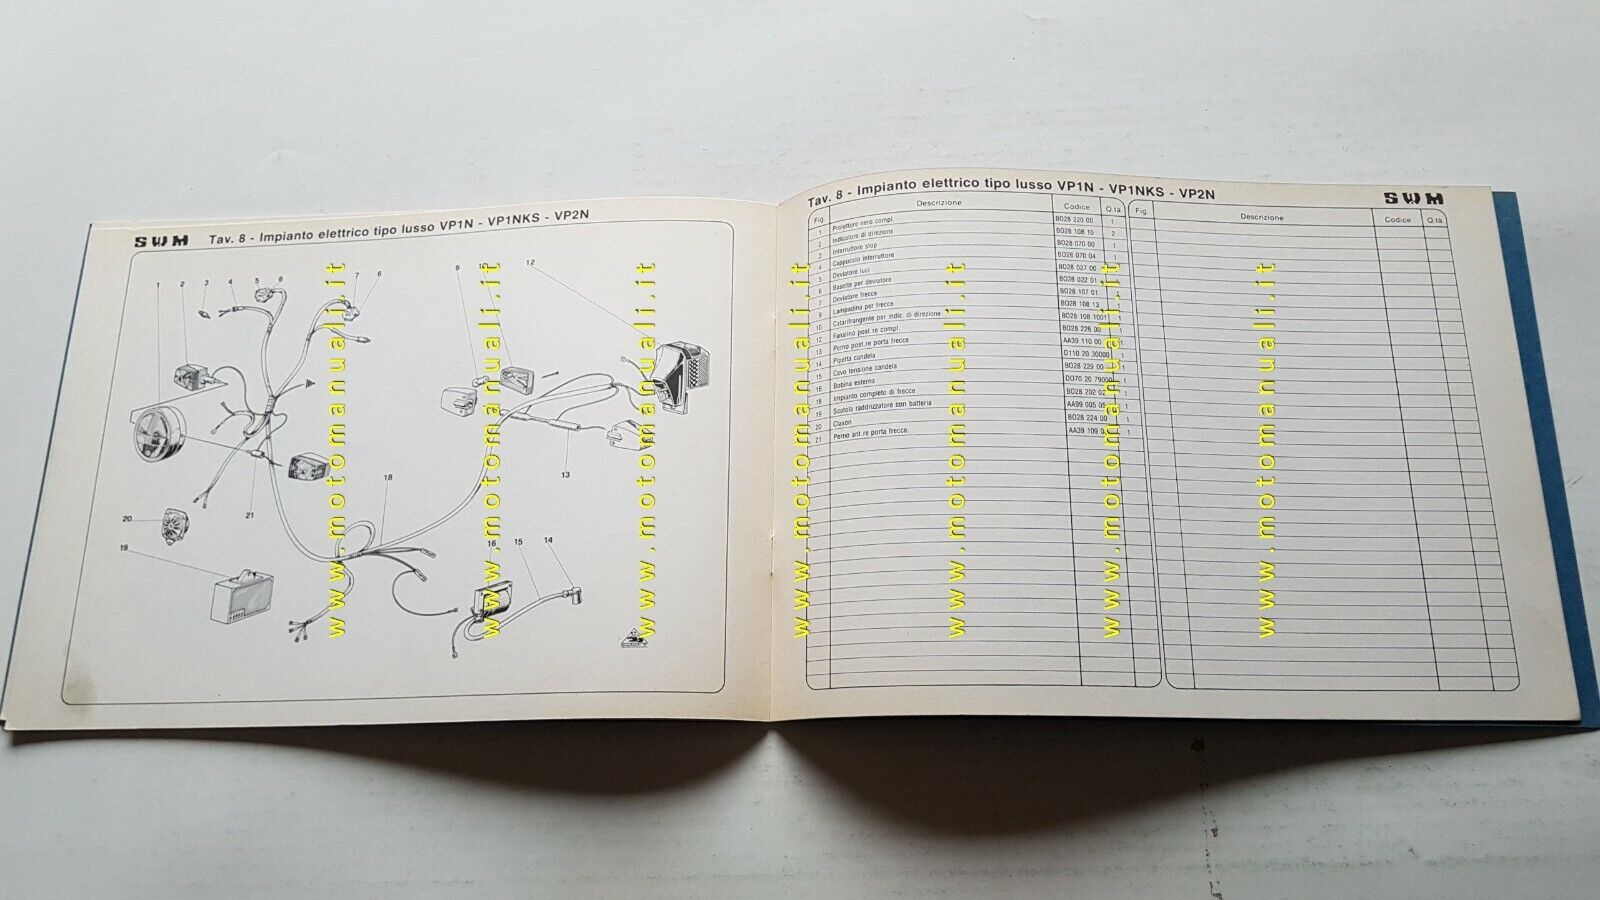 SWM Tav. 8 - Impianto elettrico tipo lusso VP1N - VP1NKS - VP2N
1 2 3 4 5 6 7 6 9 12
13
18
20 21
19
16 15 14
Tav. 8 - Impianto elettrico tipo lusso VP1N - VP1NKS - VP2N SWM
Fig. Descrizione Codice Q.tà Fig. Descrizione Codice Q.tà
1 Proiettore nero compl. B028 220 00 1
2 Indicatore di direzione B028 108 10 2
3 Interruttore stop B028 070 00 1
4 Cappuccio interruttore B028 070 04 1
5 Deviatore luci B028 027 00
6 Basette per deviatore B028 022 01
7 Deviatore frecce B028 107 01
9 Lampadina per frecce B028 108 13 1
10 Catarifrangente per indic. di direzione B028 108 1001 1
12 Fanalino post.re compl. B028 226 00 1
13 Perno post.re porta frecce AA39 110 00 1
14 Pipetta candela D110 20 30000 1
15 Cavo tensione candela B028 229 00 1
16 Bobina esterna D070 20 79000 1
18 Impianto completo di frecce B028 202 02 1
19 Scatola raddrizzatore con batteria AA99 005 05 1
20 Claxon B028 224 00 1
21 Perno ant.re porta frecce. AA39 109 1
www.motomanuali.it
www.motomanuali.it
www.motomanuali.it
www.motomanuali.it
www.motomanuali.it
www.motomanuali.it
www.motomanuali.it